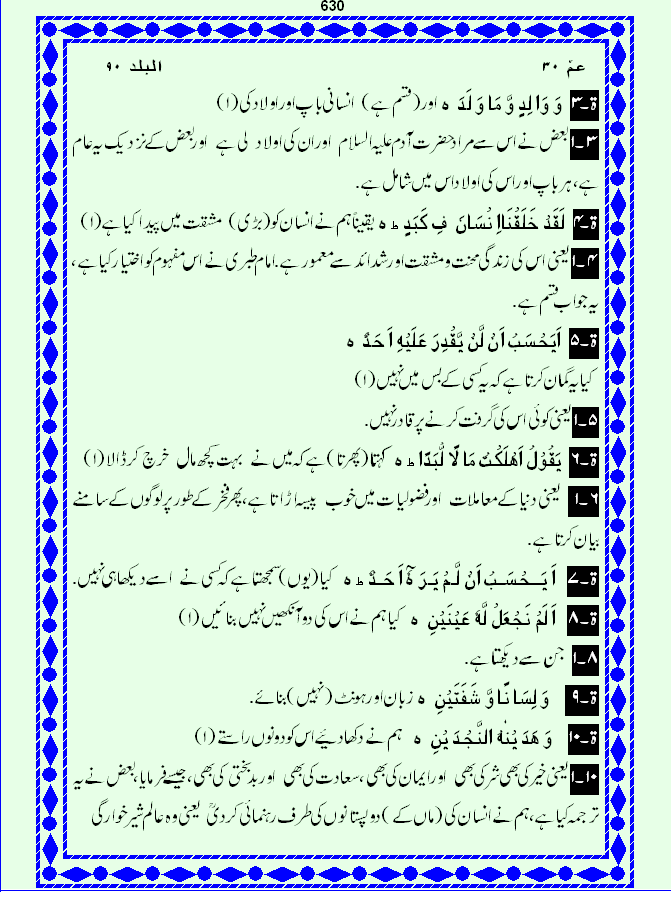 630
عمّ ۳۰ البلد ۹۰
ۃ۔۳ وَ وَالِدٍ وَّ مَا وَ لَدَ ہ اور (قسم ہے) انسانی باپ اور اولاد کی (۱)
۳۔۱ بعض نے اس سے مراد حضرت آدم علیہ السلام اور ان کی اولاد لی ہے اور بعض کے نزدیک یہ عام
ہے، ہر باپ اور اس کی اولاد اس میں شامل ہے۔
ۃ۔۴ لَقَدْ خَلَقْنَا اِنْسَانَ فِ کَبَدٍ ط ہ یقیناً ہم نے انسان کو (بڑی) مشقت میں پیدا کیا ہے (۱)
۴۔۱ یعنی اس کی زندگی محنت و مشقت اور شدائد سے معمور ہے۔ امام طبری نے اس مفہوم کو اختیار کیا ہے،
یہ جواب قسم ہے۔
ۃ۔۵ اَیَحْسَبُ اَنْ لَّنْ یَّقْدِرَ عَلَیْہِ اَحَدٌ ہ
کیا یہ گمان کرتا ہے کہ یہ کسی کے بس میں نہیں (۱)
۵۔۱ یعنی کوئی اس کی گرفت کرنے پر قادر نہیں۔
ۃ۔۶ یَقُوْلُ اَھْلَکْتُ مَا لًا لُّبَدًا ط ہ کہتا (پھرتا) ہے کہ میں نے بہت کچھ مال خرچ کر ڈالا (۱)
۶۔۱ یعنی دنیا کے معاملات اور فضولیات میں خوب پیسہ اڑاتا ہے، پھر فخر کے طور پر لوگوں کے سامنے
بیان کرتا ہے۔
ۃ۔۷ اَیَحْسَبُ اَنْ لَّمْ یَرَ ہٗ اَحَدٌ ط ہ کیا (یوں) سمجھتا ہے کہ کسی نے اسے دیکھا ہی نہیں۔
ۃ۔۸ اَلَمْ نَجْعَلْ لَّہٗ عَیْنَیْنِ ہ کیا ہم نے اس کی دو آنکھیں نہیں بنائیں (۱)
۸۔۱ جن سے دیکھتا ہے۔
ۃ۔۹ وَ لِسَا نًا وَّ شَفَتَیْنِ ہ زبان اور ہونٹ (نہیں) بنائے۔
ۃ۔۱۰ وَ ھَدَ یْنٰہُ النَّجْدَ یْنِ ہ ہم نے دکھا دیئے اس کو دونوں راستے (۱)
۱۰۔۱ یعنی خیر کی بھی شر کی بھی اور ایمان کی بھی، سعادت کی بھی اور بدبختی کی بھی، جیسے فرمایا، بعض نے یہ
ترجمہ کیا ہے، ہم نے انسان کی (ماں کے) دو پستانوں کی طرف رہنمائی کر دی یعنی وہ عالم شیر خوارگی